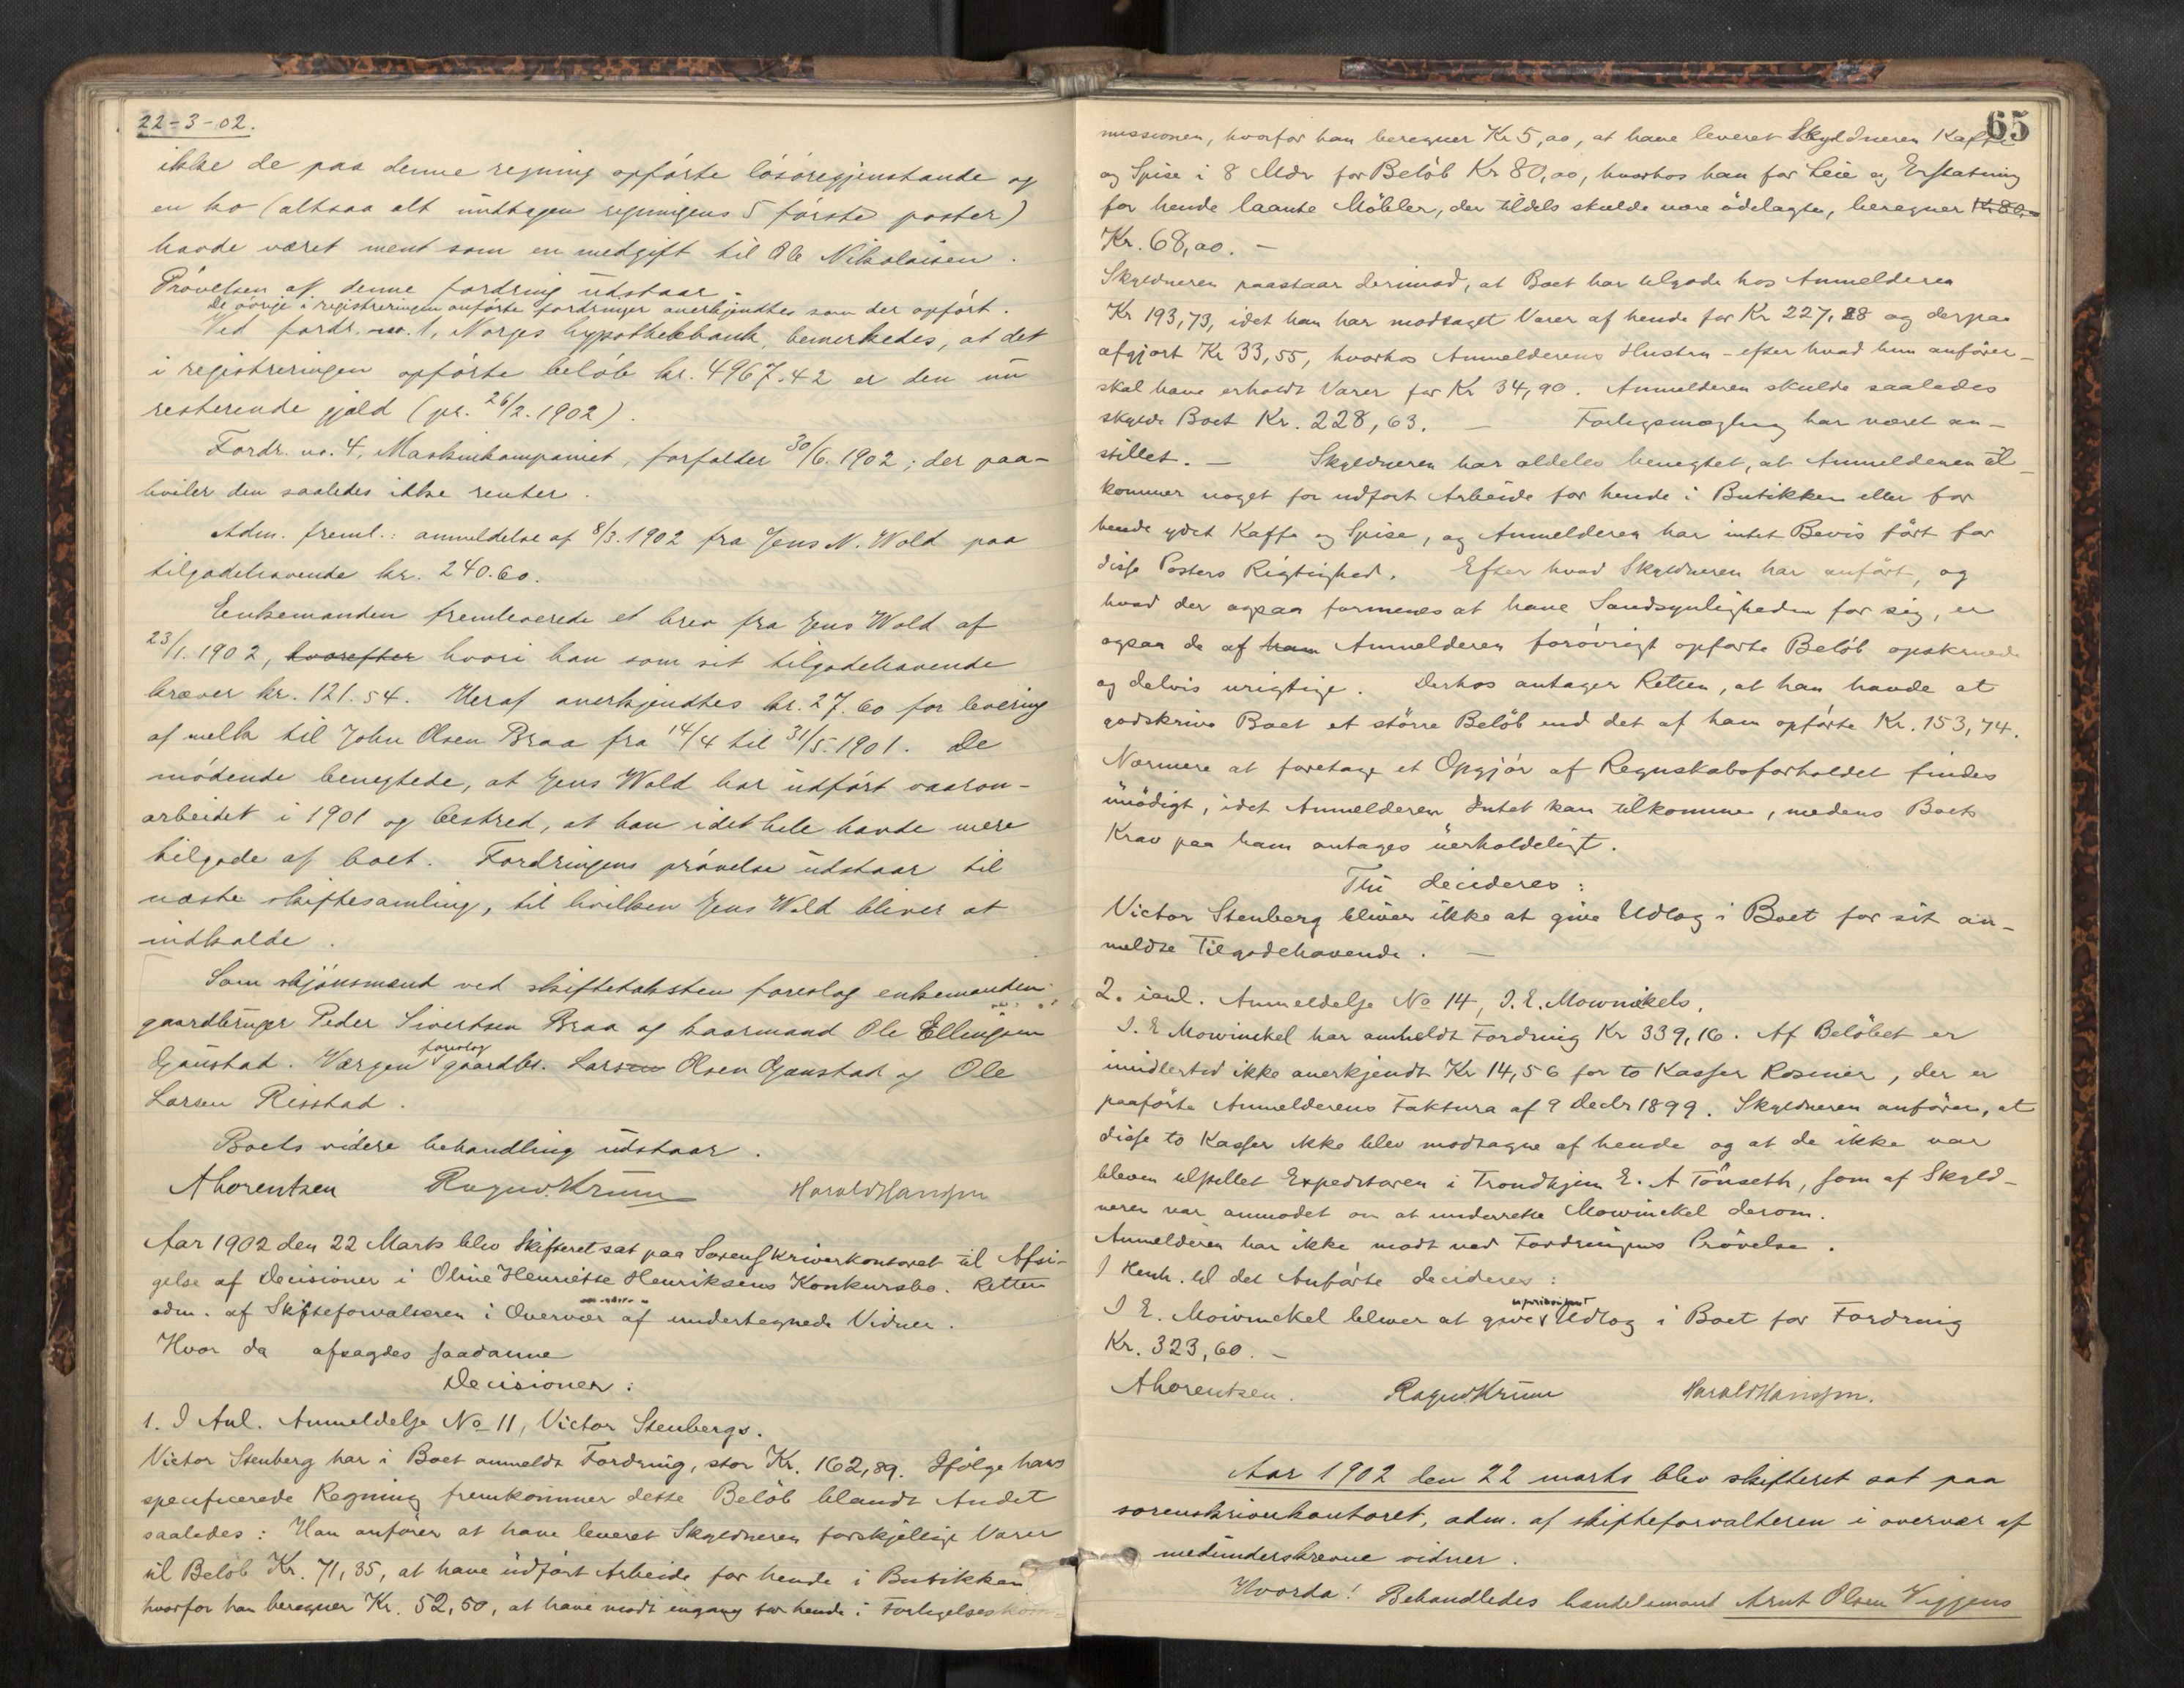 22-3-02.
ikke de paa denne regning opførte løsøregjenstande og
en ko (altsaa alt undtagen regningens 5 første poster)
havde været ment som en medgift til Ole Nikolaisen.
Prøvelsen af denne fordring udstaar.
De øvrige i registreringen anførte fordringer anerkjendtes som der opført.
Ved fordr. no. 1, Norges hypothekbank, bemerkedes, at det
i registreringen opførte beløb kr. 4967.42 er den nu
resterende gjæld (pr. 26/2. 1902).
Fordr. no. 4, Maskinkompaniet, forfalder 30/6. 1902; der paa-
hviler den saaledes ikke renter.
Adm. freml.: anmeldelse af 8/3. 1902 fra Jens N. Wold paa
tilgodehavende kr. 240.60.
Enkemanden fremleverede et brev fra Jens Wold af
23/1. 1902, hvorefter hvori han som sit tilgodehavende
kræver kr. 121.54. Heraf anerkjendtes kr. 27.60 for levering
af melk til John Olsen Braa fra 14/4 til 31/5. 1901. De
mødende benegtede, at Jens Wold har udført vaaron-
arbeidet i 1901 og bestred, at han i det hele havde mere
tilgode af boet. Fordringens prøvelse udstaar til
næste skiftesamling, til hvilken Jens Wold bliver at
indkalde.
Som skjønsmænd ved skiftetaksten foreslog enkemanden
gaardbruger Peder Sivertsen Braa og haarmand Ole Ellingsen
Gaustad. Værgen foreslog gaardbr. Larsen Olsen Gaustad og Ole
Larsen Risstad.
Boets videre behandling udstaar.
A Lorentzen Ragnv. Krüm Harald Hansen
Aar 1902 den 22 Marts blev Skifteret sat paa Sorenskriverkontoret til Afsi-
gelse af Decisioner i Oline Henriette Henriksens Konkursbo. Retten
adm. af Skifteforvalteren i Overvær af undertegnede Vidner.
Hvor da afsagdes saadanne
Decisioner:
1. I Anl. Anmeldelse No 11, Victor Stenbergs.
Victor Stenberg har i Boet anmeldt Fordring, stor Kr. 162,89. Ifølge hans
specificerede Regning fremkommer dette Beløb blandt Andet
saaledes: Han anfører at have leveret Skyldneren forskjellige Varer
til Beløb Kr. 71,35, at have udført Arbeide for hende i Butikken
hvorfor han beregner Kr. 52,50, at have mødt engang for hende i Forligelseskom-
65
missionen, hvorfor han beregner Kr 5,00, at have leveret Skyldneren Kaffe
og Spise i 8 Mdr for Beløb Kr 80,00, hvorhos han for Leie og Erstatning
for hende laante Møbler, der tildels skulde være ødelagte, beregner Kr 80,00
Kr. 68,00. —
Skyldneren paastaar derimod, at Boet har tilgode hos Anmelderen
Kr 193,73, idet han har modtaget Varer af hende for Kr 227,28 og derpaa
afgjort Kr 33,55, hvorhos Anmelderens Hustru - efter hvad hun anfører -
skal have erholdt Varer for Kr 34,90. Anmelderen skulde saaledes
skylde Boet Kr. 228,63. — Forligsmægling har været an-
stillet. — Skyldneren har aldeles benegtet, at Anmelderen til-
kommer noget for udført Arbeide for hende i Butikken eller for
hende ydet Kaffe og Spise, og Anmelderen har intet Bevis ført for
disse Posters Rigtighed. Efter hvad Skyldneren har anført, og
hvad der ogsaa formenes at have Sandsynligheden for sig, er
ogsaa de af ham Anmelderen forøvrigt opførte Beløb opskruede
og delvis urigtige. Derhos antager Retten, at han havde at
godskrive Boet et større Beløb end det af ham opførte Kr. 153,74.
Nærmere at foretage et Opgjør af Regnskabsforholdet findes
unødigt, idet Anmelderen Intet kan tilkomme, medens Boets
Krav paa ham antages uerholdeligt.
Thi decideres:
Victor Stenberg bliver ikke at give Udlæg i Boet for sit an-
meldte Tilgodehavende. —
2. i anl. Anmeldelse No 14, I. E. Mowinckels.
I. E Mowinckel har anmeldt Fordring Kr 339,16. Af Beløbet er
imidlertid ikke anerkjendt Kr 14,56 for to Kasser Rosiner, der er
paaførte Anmelderens Faktura af 9 Decbr 1899. Skyldneren anfører, at
disse to Kasser ikke blev modtagne af hende og at de ikke var
bleven tilstillet Expeditøren i Trondhjem E. A Tönseth, som af Skyld-
neren var anmodet om at underrette Mowinckel derom.
Anmelderen har ikke mødt ved Fordringens Prøvelse.
I Henh. til det Anførte decideres:
I E. Mowinckel bliver at give uprioriteret Udlæg i Boet for Fordring
Kr. 323,60. —
A Lorentzen. Ragnv. Krüm Harald Hansen.
Aar 1902 den 22 marts blev skifteret sat paa
sorenskriverkontoret, adm. af skifteforvalteren i overvær af
medunderskrevne vidner.
Hvorda! Behandledes handelsmand Arnt Olsen Viggens